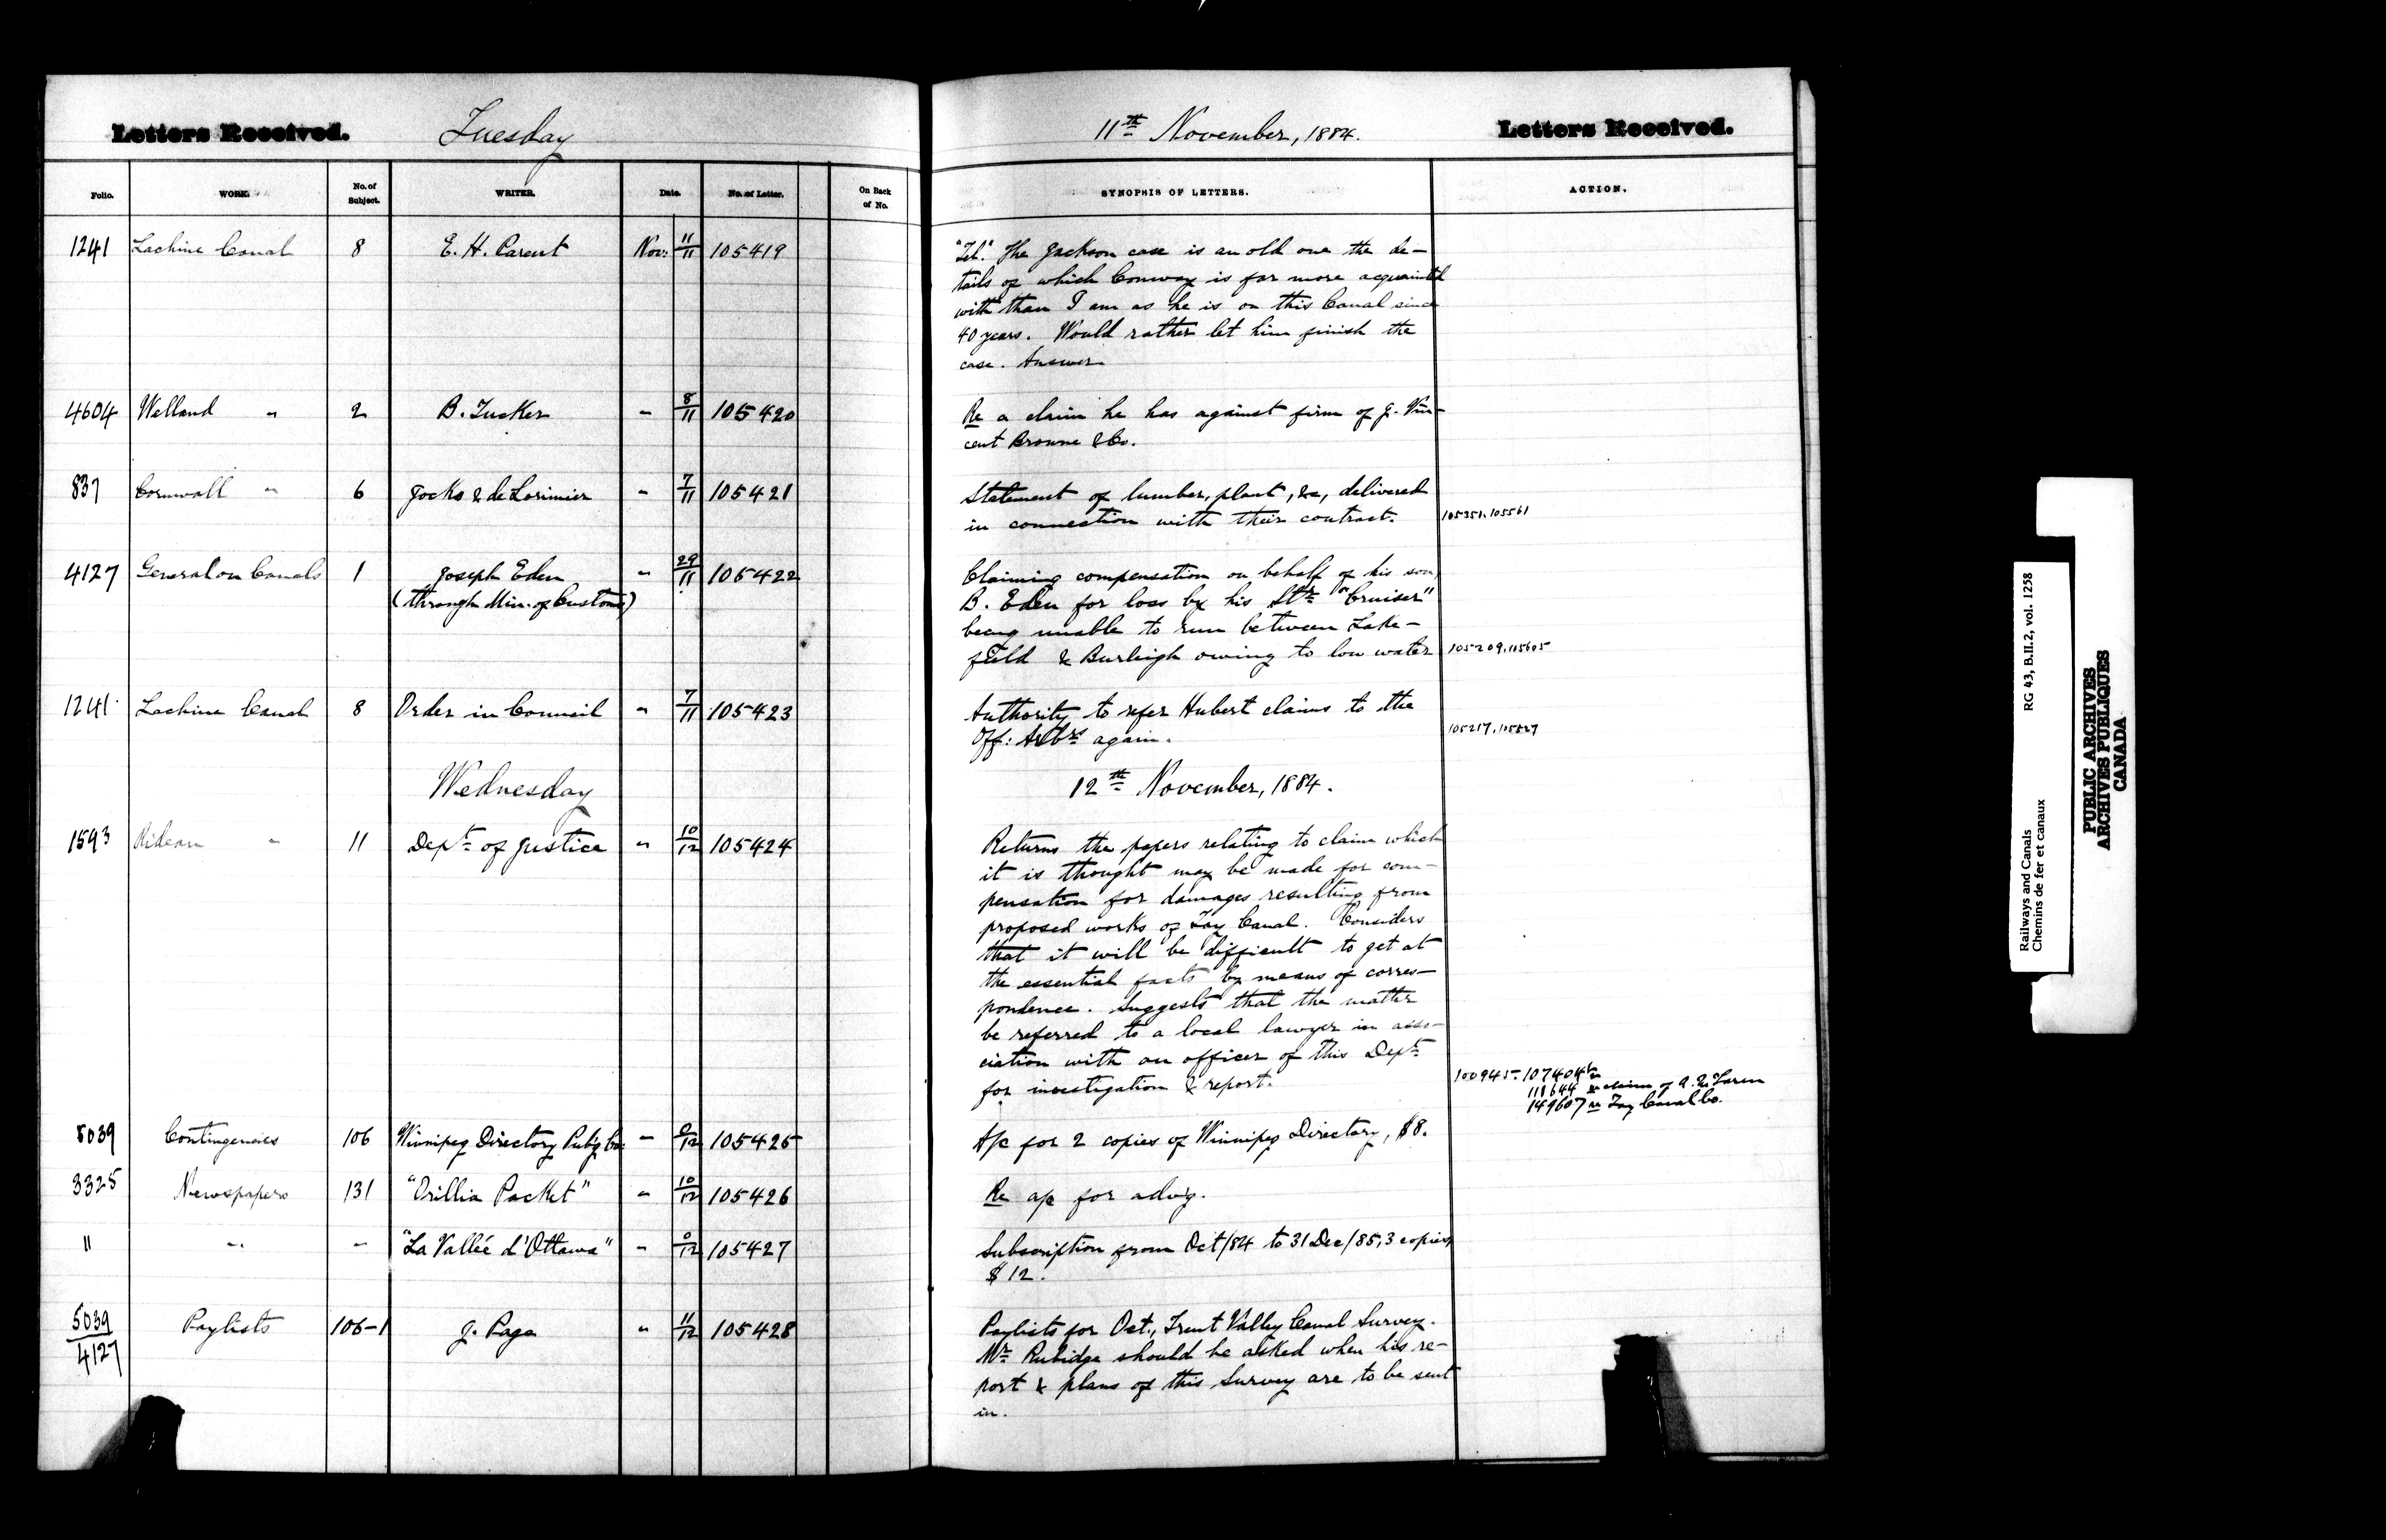 Letters Received. Tuesday 11th November, 1884. Letters Received.
Folio. WORK. No. of Subject. WRITER. Date. No. of Letter. On Back of No. SYNOPSIS OF LETTERS. ACTION.
1241 Lachine Canal 8 E. H. Parent Nov: 11/11 105419 "Tel." The Jackson case is an old one the de-
tails of which Conway is far more acquainted
with than I am as he is on this Canal since
40 years. Would rather let him finish the
case. Answer
4604 Welland " 2 B. Tucker " 8/11 105420 Re a claim he has against firm of J. Vin-
cent Browne & Co.
837 Cornwall " 6 Jocks & de Lorimier " 7/11 105421 Statement of lumber, plant, &c, delivered
in connection with their contract. 105351, 105561
4127 General on Canals 1 Joseph Eden " 29/11 105422 Claiming compensation on behalf of his son,
(through Min. of Customs) B. Eden for loss by his Str "Cruiser"
being unable to run between Lake-
field & Burleigh owing to low water 105209, 105605
1241 Lachine Canal 8 Order in Council " 7/11 105423 Authority to refer Hubert claims to the
Off: Arbrs again. 105217,
Wednesday 12th November, 1884.
1593 Rideau " 11 Dept of Justice " 10/12 105424 Returns the papers relating to claim which
it is thought may be made for com-
pensation for damages resulting from
proposed works of Tay Canal. Considers
that it will be difficult to get at
the essential facts by means of corres-
pondence. Suggests that the matter
be referred to a local lawyer in asso-
ciation with an officer of this Dept
for investigation & report. 100945- 107404
111644 re claim of A. McLaren
149607 re Tay Canal Co.
5039 Contingencies 106 Winnipeg Directory Pub'g Co. " 0/12 105425 A/c for 2 copies of Winnipeg Directory, $8.
3325 Newspapers 131 "Orillia Packet" " 10/12 105426 Re a/c for advg.
" " " "La Vallée d'Ottawa" " 0/12 105427 Subscription from Oct/84 to 31 Dec/85, 3 copies,
$12.
5039/4127 Paylists 106-1 J. Page " 11/12 105428 Paylists for Oct., Trent Valley Canal Survey.
Mr Rubidge should be asked when his re-
port & plans of this Survey are to be sent
in.
Railways and Canals RG 43, B.II.2, vol. 1258
Chemins de fer et canaux
PUBLIC ARCHIVES
ARCHIVES PUBLIQUES
CANADA